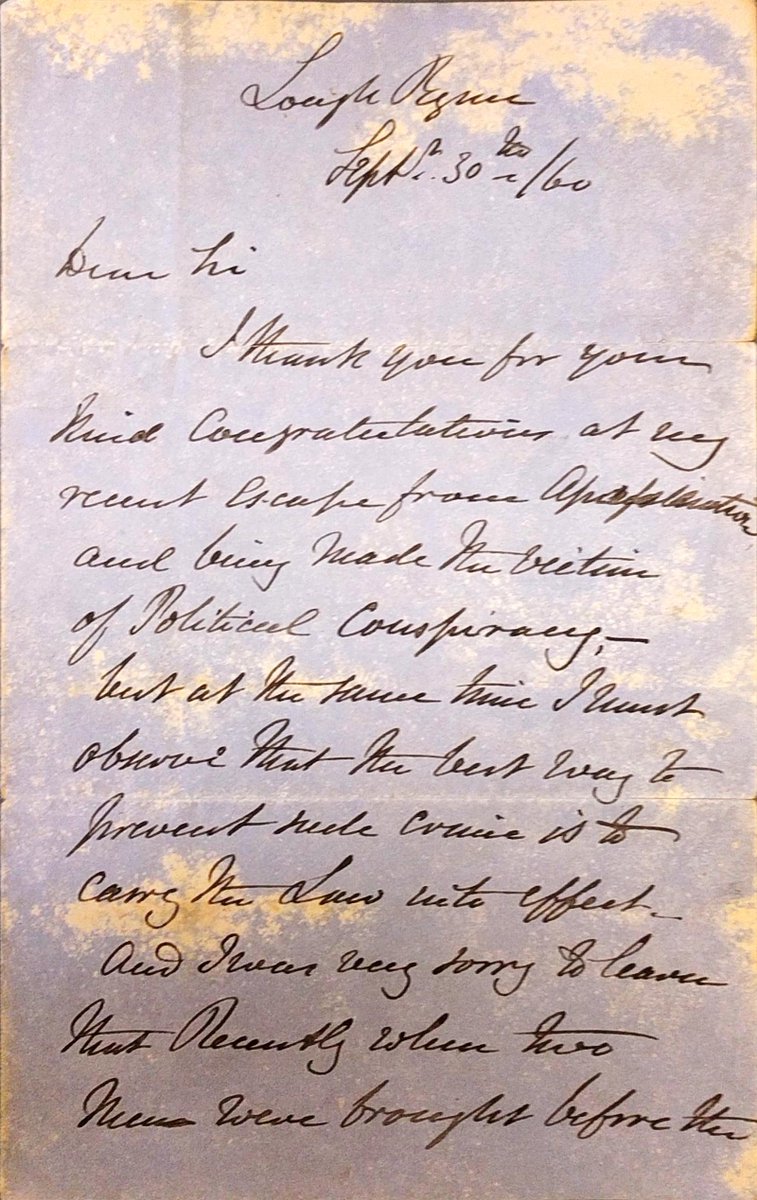 Lough Rynn
Septr. 30th/60
Dear Sir
I thank you for your
kind Congratulations at my
recent escape from
and being made the victim
of Political Conspiracy,—
but at the same time I must
observe that the best way to
prevent such crime is to
carry the Law into effect.
And I was very sorry to learn
that Recently when two
Men were brought before the